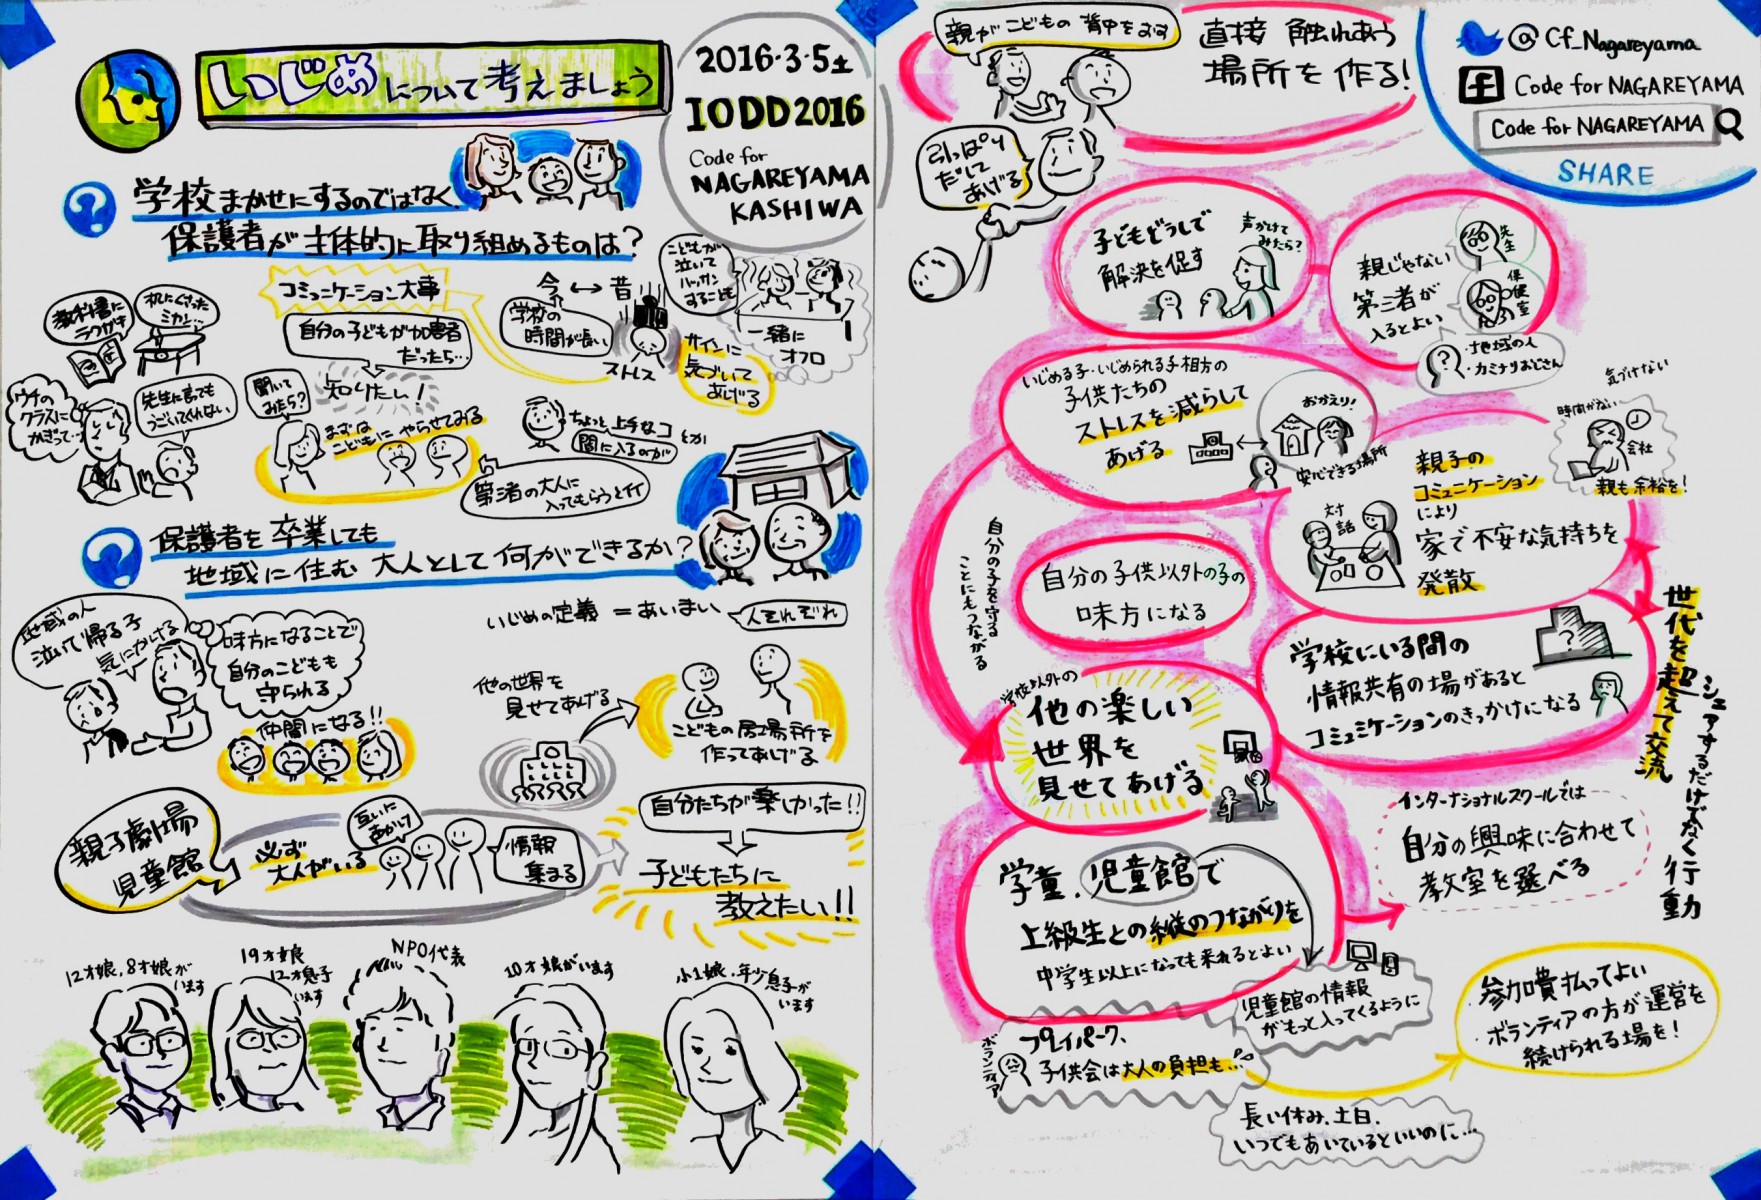 いじめについて考えましょう
2016・3・5土
IODD2016
Code for
NAGAREYAMA
KASHIWA
学校まかせにするのではなく、
保護者が主体的に取り組めるものは?
教科書に
ラクガキ
コミュニケーション大事
自分の子どもが加害者
だったら…
知りたい!
今↔昔
学校の
時間が長い
ストレス
こどもが
泣いて
することも
一緒に
オフロ
サインに
気づいて
あげる
ウチの
クラスに
かぎって…
先生に言っても
うごいてくれない
聞いて
みたら?
まずは
こどもにやらせてみる
ちょっと上手なコ
とか
間に入るのが
第3者の大人に
入ってもらうとイイ
保護者を卒業しても
地域に住む大人として何ができるか?
地域の人
泣いて帰る子
気にかける
味方になることで
自分のこどもも
守られる
仲間になる!!
いじめの定義=あいまい
人それぞれ
他の世界を
見せてあげる
こどもの居場所を
作ってあげる
親子劇場
児童館
必ず
大人がいる
情報
集まる
自分たちが楽しかった!!
子どもたちに
教えたい!!
12才娘,8才娘が
います
19才娘
12才息子
います
NPO代表
10才娘がいます
小1娘,年少息子が
います
親がこどもの背中をおす
直接触れあう
場所を作る!
引っぱり
だして
あげる
@Cf_Nagareyama
Code for NAGAREYAMA
Code for NAGAREYAMA
SHARE
子どもどうしで
解決を促す
声かけて
みたら?
親じゃない
第三者が
入るとよい
先生
保健室
・地域の人
・カミナリおじさん
いじめる子・いじめられる子相方の
子供たちの
ストレスを減らして
あげる
おかえり!
安心できる場所
気づけない
時間がない
会社
親も余裕を!
親子の
コミュニケーション
により
家で不安な気持ちを
発散
対話
自分の子を守る
ことにもつながる
自分の子供以外の子の
味方になる
学校にいる間の
情報共有の場があると
コミュミケーションのきっかけになる
世代を超えて交流
シェアするだけでなく行動
学校以外の
他の楽しい
世界を
見せてあげる
インターナショナルスクールでは
自分の興味に合わせて
教室を選べる
学童、児童館で
上級生との縦のつながりを
中学生以上になっても来れるとよい
児童館の情報
がもっと入ってくるように
ボランティア
プレイパーク、
子供会は大人の負担も…
参加費払ってよい
ボランティアの方が運営を
続けられる場を!
長い休み、土日、
いつでもあいているといいのに…